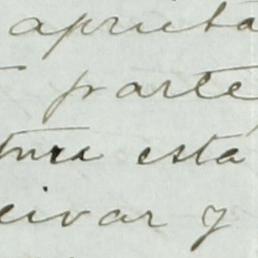 aprieta
parte
tura está
eivar y